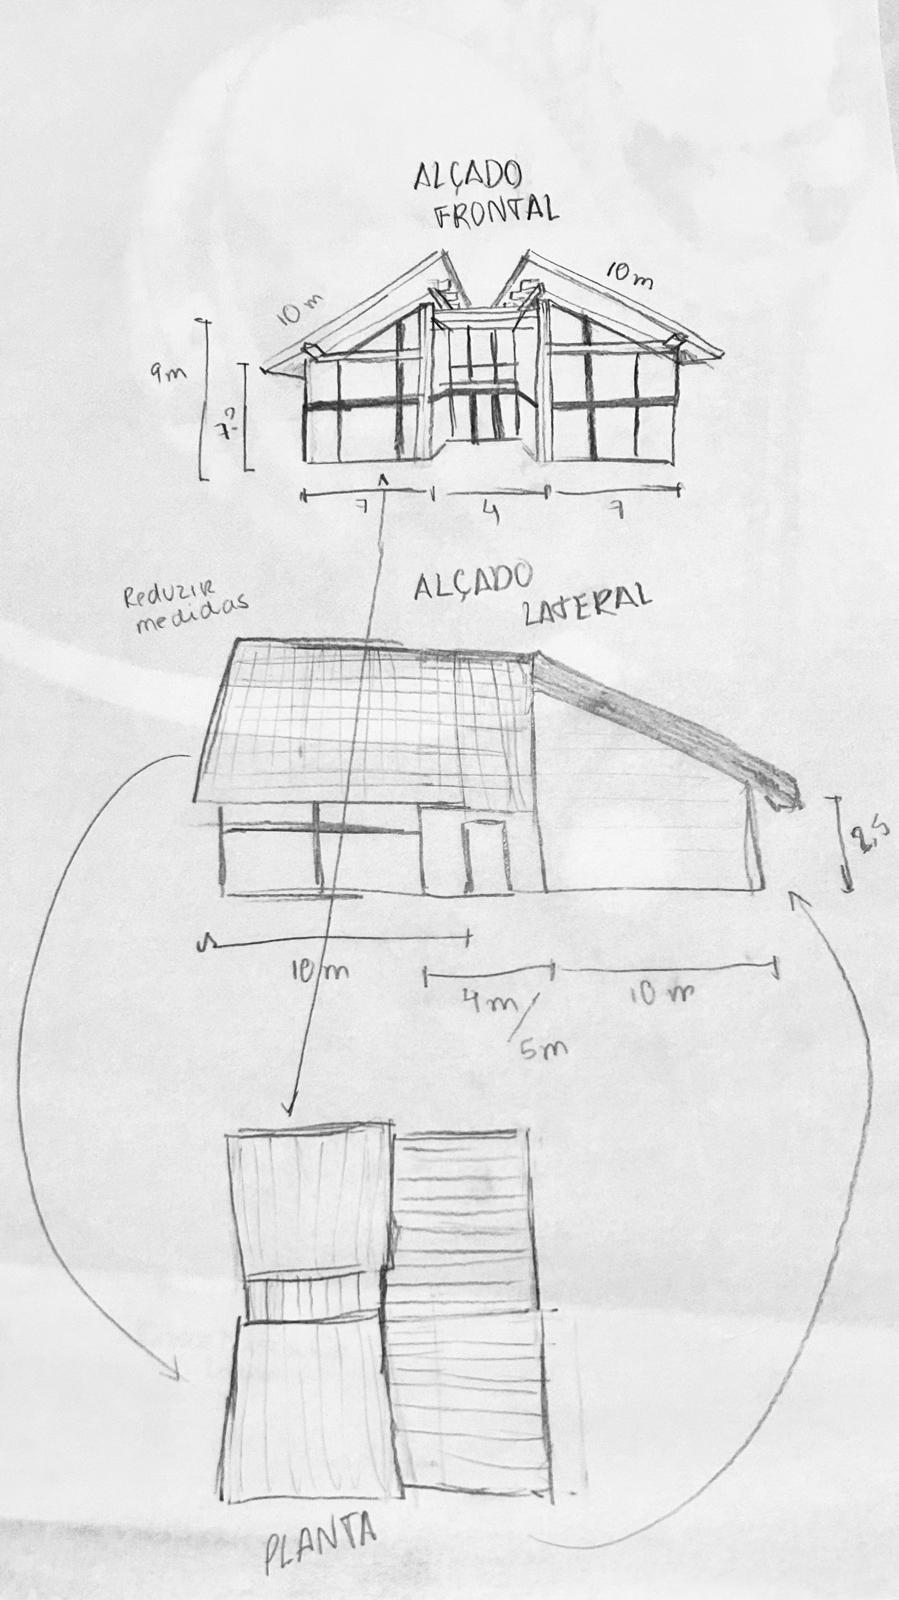 ALÇADO
FRONTAL
10 m
10 m
9m
7
4
7
Reduzir
medidas
ALÇADO
LATERAL
2,5
10 m
4m
10 m
5m
PLANTA